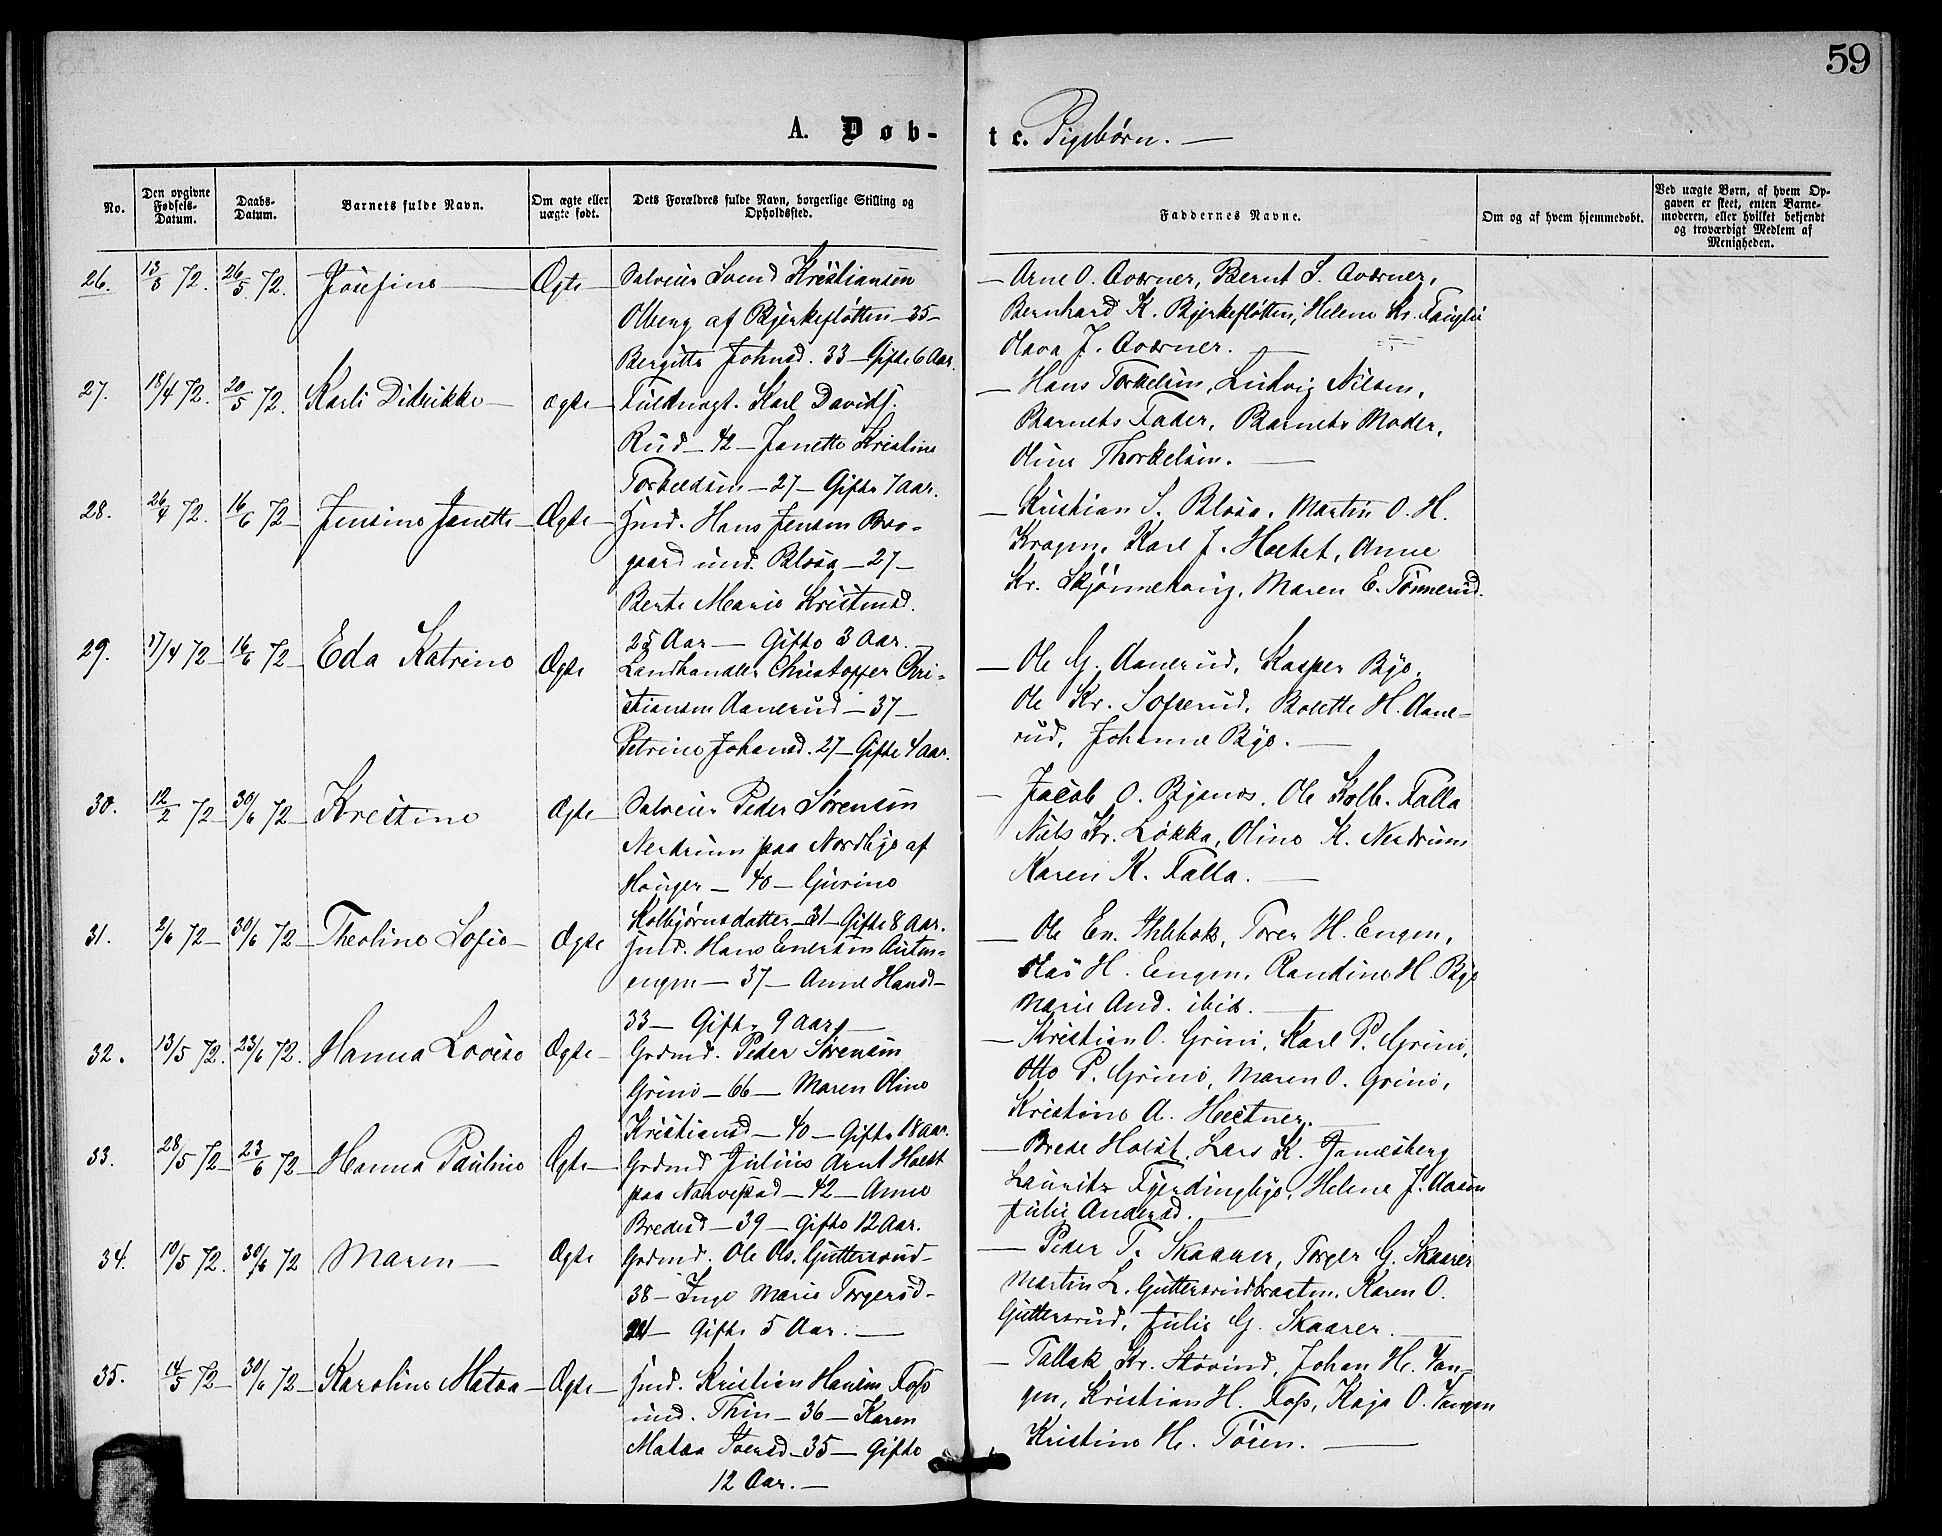 59
A. Døb-
te. Pigebørn. —
No.
Den opgivne Fødsels-Datum.
Daabs-Datum.
Barnets fulde Navn.
Om ægte eller uægte født.
Dets Forældres fulde Navn, borgerlige Stilling og Opholdssted.
Faddernes Navne.
Om og af hvem hjemmedøbt.
Ved uægte Børn, af hvem Opgaven er skeet, enten Barnemoderen, eller hvilket bekjendt og troværdigt Medlem af Menigheden.
26. 13/3 72. 26/5 72. Josefine — Ægte — Selveier Svend Kristiansen
Olberg af Bjerkefløtten — 35 —
Bergitte Johnsd. 33 — Gifte 6 Aar.
— Arne O. Aværner, Bernt S. Aværner,
Bernhard K. Bjerkefløtten, Helene Kr.
Olava J. Aværner. —
27. 18/4 72. 20/5 72. Karli Didrikke — ægte — Fuldmægt. Karl Davids.
Rud — 42 — Janette Kristine
— 27 — Gifte 7 Aar.
— Hans Torkelsen, Ludvig Nilsen,
Barnets Fader, Barnets Moder,
Oline Thorkelsen. —
28. 26/4 72. 16/6 72 — Jensine Janette — Ægte — Hmd. Hans Jensen Bro-
gaard und. Blosa — 27 —
Berte Marie Kristensd.
25 Aar — Gifte 3 Aar. —
— Kristian S. Blosa, Martin O. H.
Kragen, Karl J. Holtet, Anne
Kr. Skjønnehaug, Maren E. Tønnerud.
29. 17/4 72 — 16/6 72 — Eda Katrine Ægte Landhandler Christoffer Chri-
stiansen Aanerud — 37 —
Petrine Johansd. 27 — Gifte 4 Aar.
— Ole G. Aanerud, Kasper Bye,
Ole Kr. Sofserud, Bolette H. Aane-
rud, Johanne Bye. —
30. 12/2 72 — 30/6 72 — Kristine Ægte — Selveier Peder Sørensen
Nerdrum paa Nordbye af
Hauger — 40 — Gurine
Kolbjørnsdatter — 31 — Gifte 8 Aar.
— Jacob O. Bjanes, Ole Kolb. Falla
Nils Kr. Løkka, Oline K. Nerdrum
Karen K. Falla. —
31. 2/6 72 — 30/6 72 — Theoline Sofie — Ægte Hans Enersen
engen — 37 — Anne Hansd —
33 — Gifte 9 Aar —
— Ole En. Torer H. Engen,
H. Engen, Randine H. Bye
Marie And. ibid. —
32. 13/5 72. 23/6 72. Hanna Lovise Ægte — Grdmd. Peder Sørensen
Grini — 66 — Maren Oline
Kristiansd — 40 — Gifte 18 Aar.
— Kristian O. Grini, Karl P. Grini,
Otto P. Grini, Maren O. Grini,
Kristine A. —
33. 28/5 72 — 23/6 72 — Hanna Pauline Ægte — Grdmd Julius Arnt Holst
paa Narvestad — 42 — Anne
Bredesd — 39 — Gifte 12 Aar.
— Brede Holst, Lars K.
Lauritz Fjerdingbye, Helene J. Aasen
Julie Andersd. —
34. 10/5 72. 30/6 72 Maren — Ægte Grdmd. Ole Os. Guttersrud —
38 — Inge Marie Torgersd —
24 — Gifte 5 Aar. —
— Peder T. Skaarer, Torger G. Skaarer
Martin L. Guttersrudbraaten, Karen O.
Guttersrud, Julie G. Skaarer. —
35. 14/5 72 — 30/6 72 — Karoline Matea — Ægte — Hmd. Kristian Hansen Foss
und. Thin — 36 — Karen
Matea Iversd — 35 — Gifte
12 Aar. —
— Tallak Kr. Støvind, Johan H. Van-
gen, Kristian H. Foss, Kaja O. Vangen
Kristine H. Tøien. —